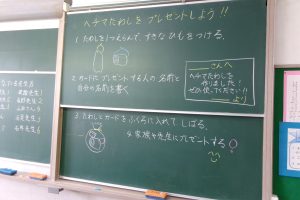 ヘチマたわしを プレゼントしよう!!
1. たわしを1つえらんで、すきなひもをつける。
2. カードに プレゼントする人の名前と
自分の名前を書く
さんへ
ヘチマでたわしを
作りました!
ぜひ使ってください!!
より
3. たわしとカードをふくろに入れて、しばる。
4. 家族や先生にプレゼントする